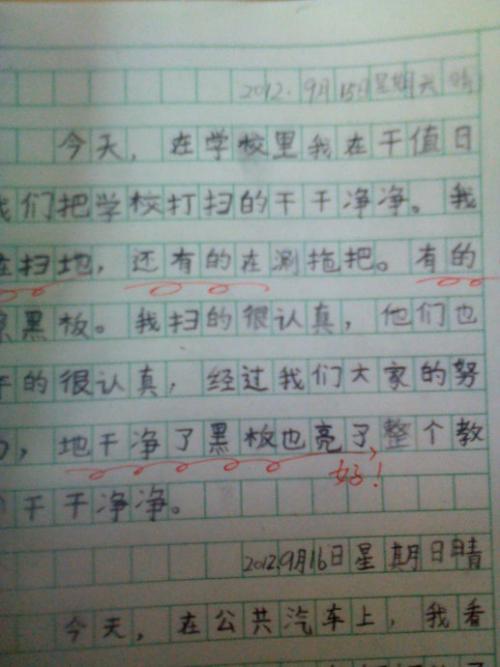 2012.9月15日星期六 晴
今天，在学校里我在干值日
我们把学校打扫的干干净净。我
在扫地，还有的在涮拖把。有的
擦黑板。我扫的很认真，他们也
干的很认真，经过我们大家的努
力，地干净了黑板也亮了，整个教
好！
干干净净。
2012.9月16日星期日晴
今天，在公共汽车上，我看